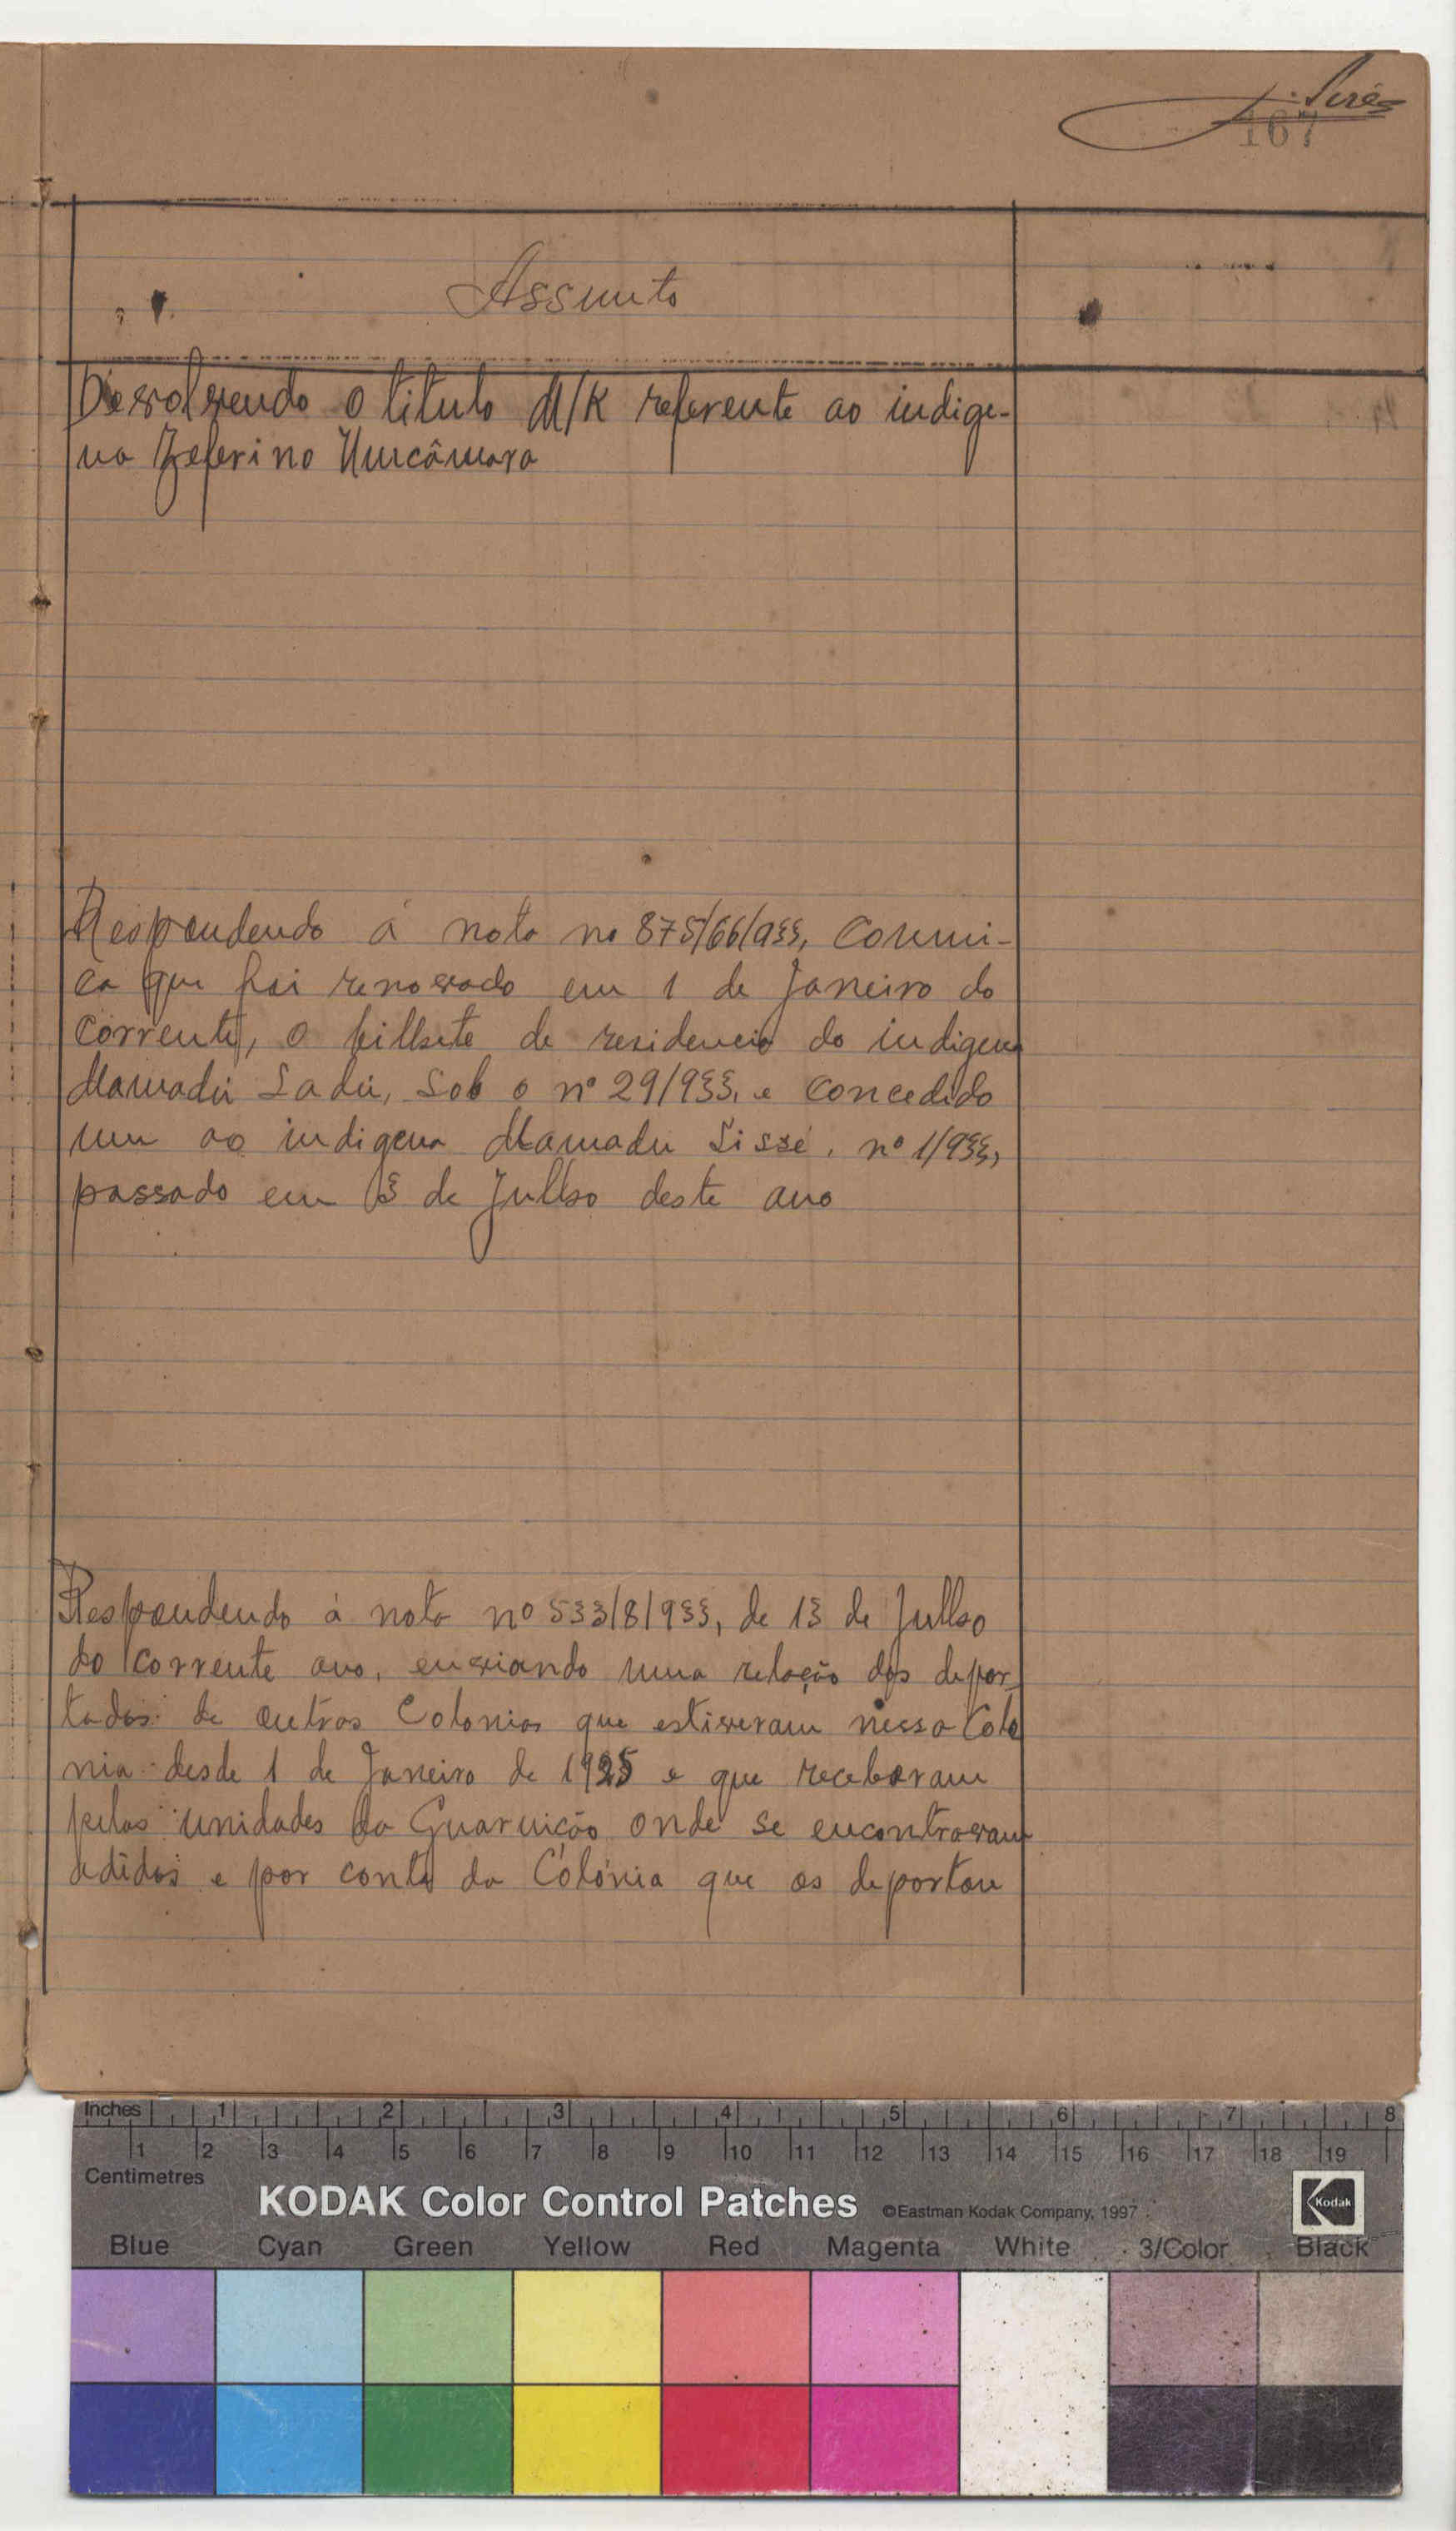 167
Assunto
Devolvendo o titulo M/K referente ao indige-
na Zeferino Umcâmara
Respondendo á nota no 875/66/933, Comuni-
ca que foi renovado em 1 de Janeiro do
corrente, o bilhete de residencia do indigena
Mamadú Sadú, sob o nº 29/933, e concedido
um ao indigena Mamadu Sissé, nº 1/933,
passado em 13 de Julho deste ano
Respondendo á nota nº 533/8/933, de 13 de Julho
do corrente ano, enviando uma relação dos depor-
tados de outras Colonias que estiveram nessa Colo
nia desde 1 de Janeiro de 1925 e que receberam
pelas unidades da Guarnição onde se encontravam
adidos e por conta da Colónia que os deportou
Inches 1 2 3 4 5 6 7 8
1 2 3 4 5 6 7 8 9 10 11 12 13 14 15 16 17 18 19
Centimetres
KODAK Color Control Patches ©Eastman Kodak Company, 1997 Kodak
Blue Cyan Green Yellow Red Magenta White 3/Color Black